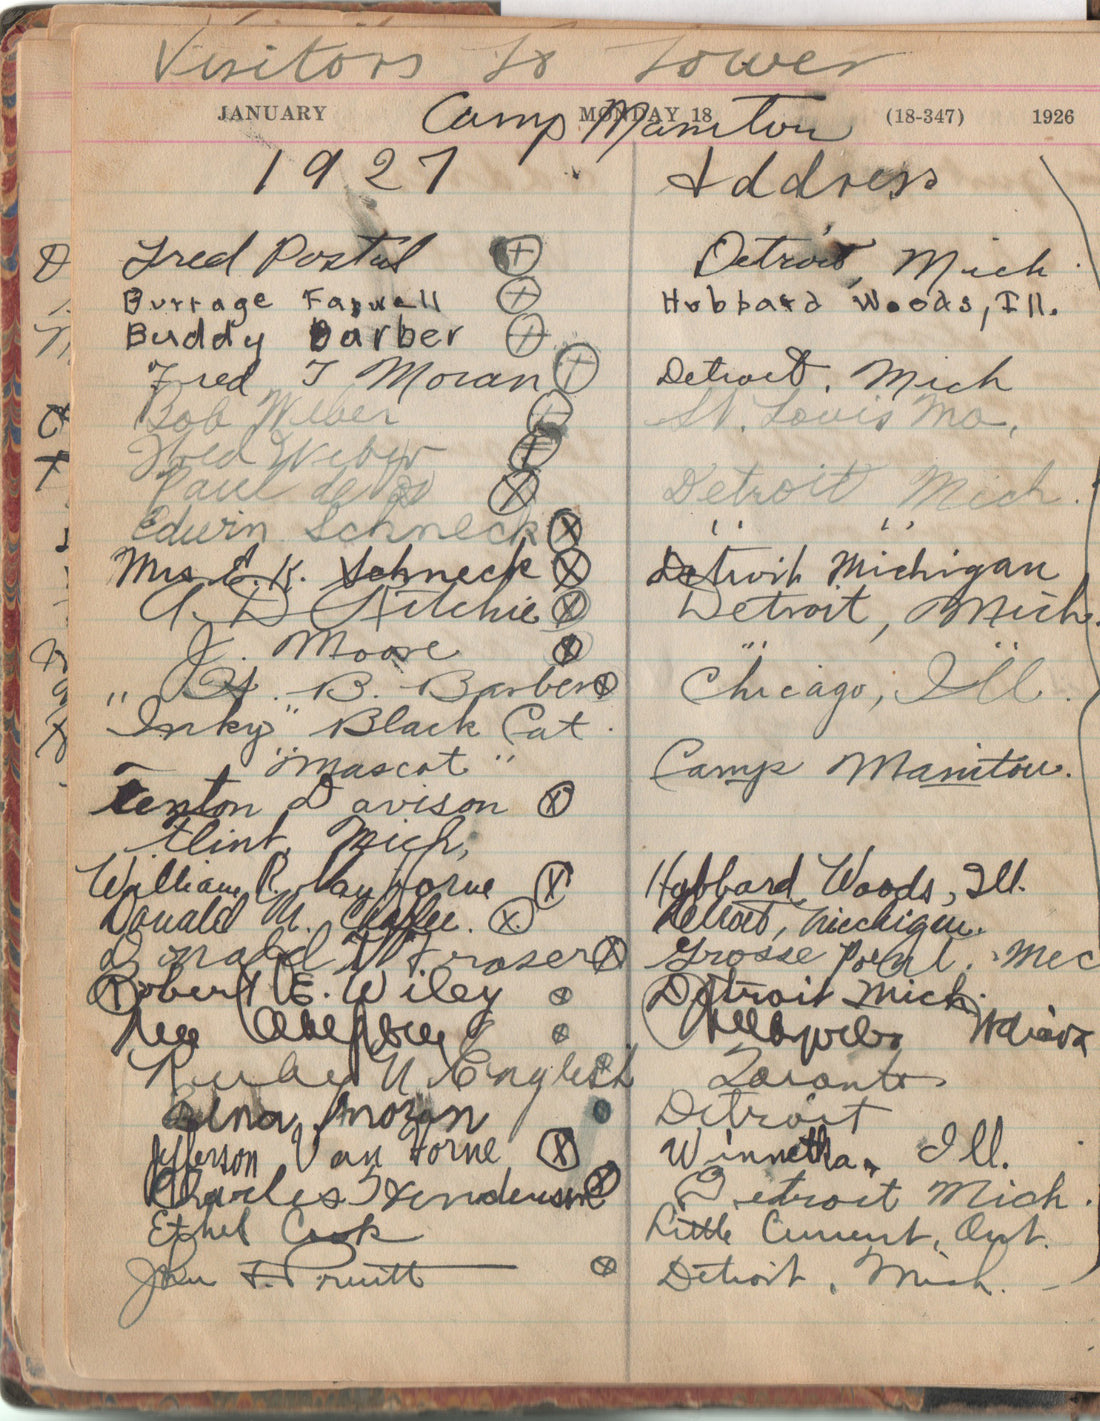 Visitors to Tower
JANUARY MONDAY 18 (18-347) 1926
Camp Manitou
1927 Address
Fred Postal Detroit, Mich.
Burrage Farwell Hubbard Woods, Ill.
Buddy Barber
Fred T Moran Detroit, Mich
Bob Weber St. Louis Mo,
Fred Weber
Paul Detroit Mich.
Edwin Schneck " "
Mrs E. K. Schneck Detroit Michigan
A. D. Ritchie Detroit, Mich.
J. Moore " "
H. B. Barber Chicago, Ill.
"Inky" Black Cat.
"Mascot" Camp Manitou.
Fenton Davison
Flint, Mich,
William R. Van Horne Hubbard Woods, Ill.
Donald M. Chaffee. Detroit, Michigan.
Donald W Fraser Grosse Point.
Robert E. Wiley Detroit Mich.
Ruby N English Toronto
Moran Detroit
Jefferson Van Horne Winnetka, Ill.
Charles Henderson Detroit Mich.
Ethel Cook Little Current, Ont.
John F. Pruitt Detroit, Mich.